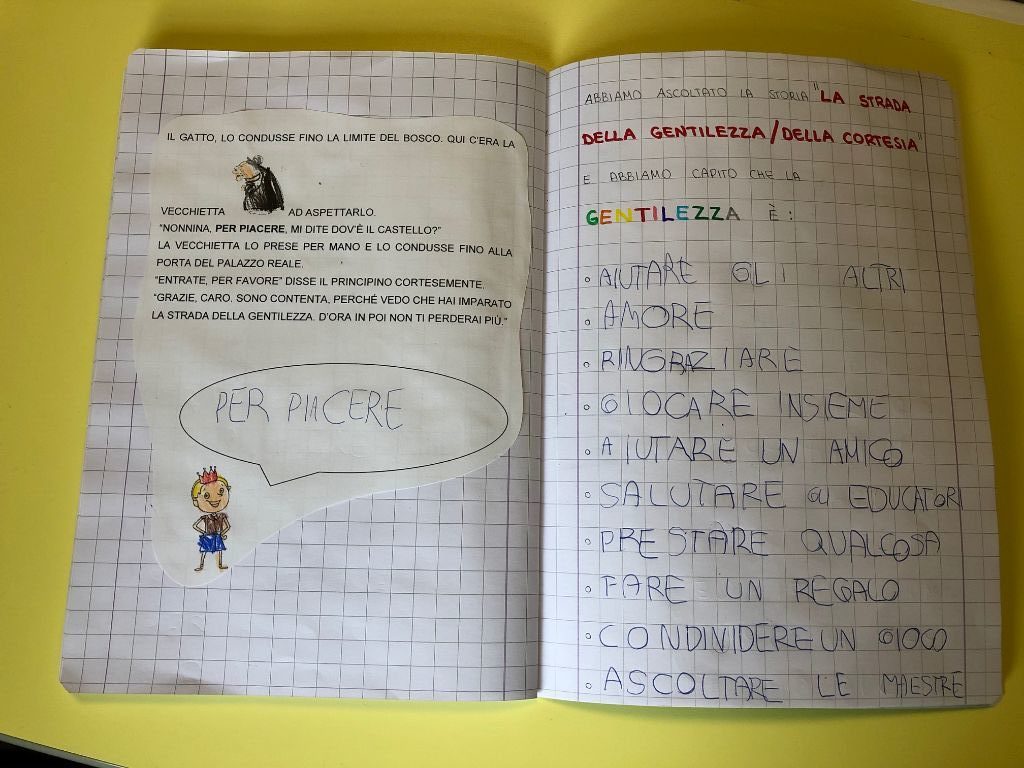 IL GATTO, LO CONDUSSE FINO LA LIMITE DEL BOSCO. QUI C'ERA LA
VECCHIETTA AD ASPETTARLO.
"NONNINA, PER PIACERE, MI DITE DOV'È IL CASTELLO?"
LA VECCHIETTA LO PRESE PER MANO E LO CONDUSSE FINO ALLA
PORTA DEL PALAZZO REALE.
"ENTRATE, PER FAVORE" DISSE IL PRINCIPINO CORTESEMENTE.
"GRAZIE, CARO. SONO CONTENTA, PERCHÉ VEDO CHE HAI IMPARATO
LA STRADA DELLA GENTILEZZA. D'ORA IN POI NON TI PERDERAI PIÙ."
PER PIACERE
ABBIAMO ASCOLTATO LA STORIA "LA STRADA
DELLA GENTILEZZA/DELLA CORTESIA"
E ABBIAMO CAPITO CHE LA
GENTILEZZA È:
• AIUTARE GLI ALTRI
• AMORE
• RINGRAZIARE
• GIOCARE INSIEME
• AIUTARE UN AMICO
• SALUTARE GLI EDUCATORI
• PRESTARE QUALCOSA
• FARE UN REGALO
• CONDIVIDERE UN GIOCO
• ASCOLTARE LE MAESTRE